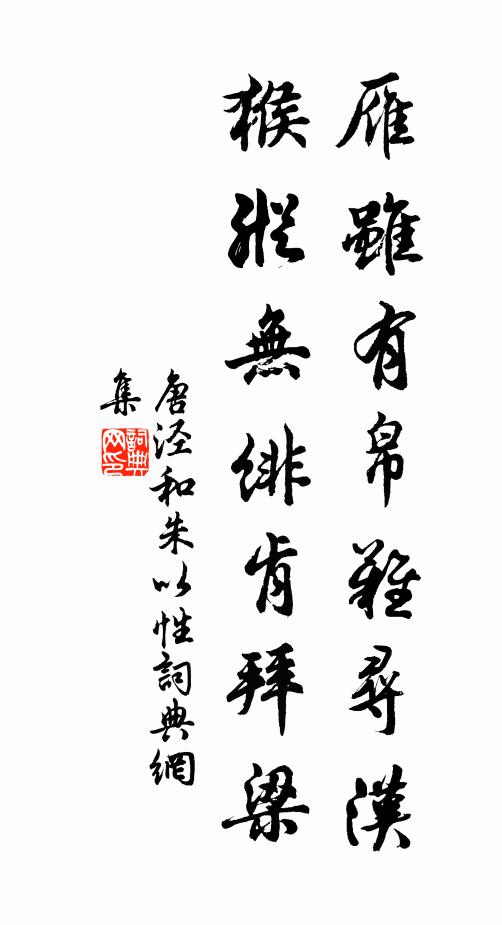 雁雖有帛難尋漢
猴縱無緋肯拜梁
唐涇和朱以性詞典網
集
詞典网印